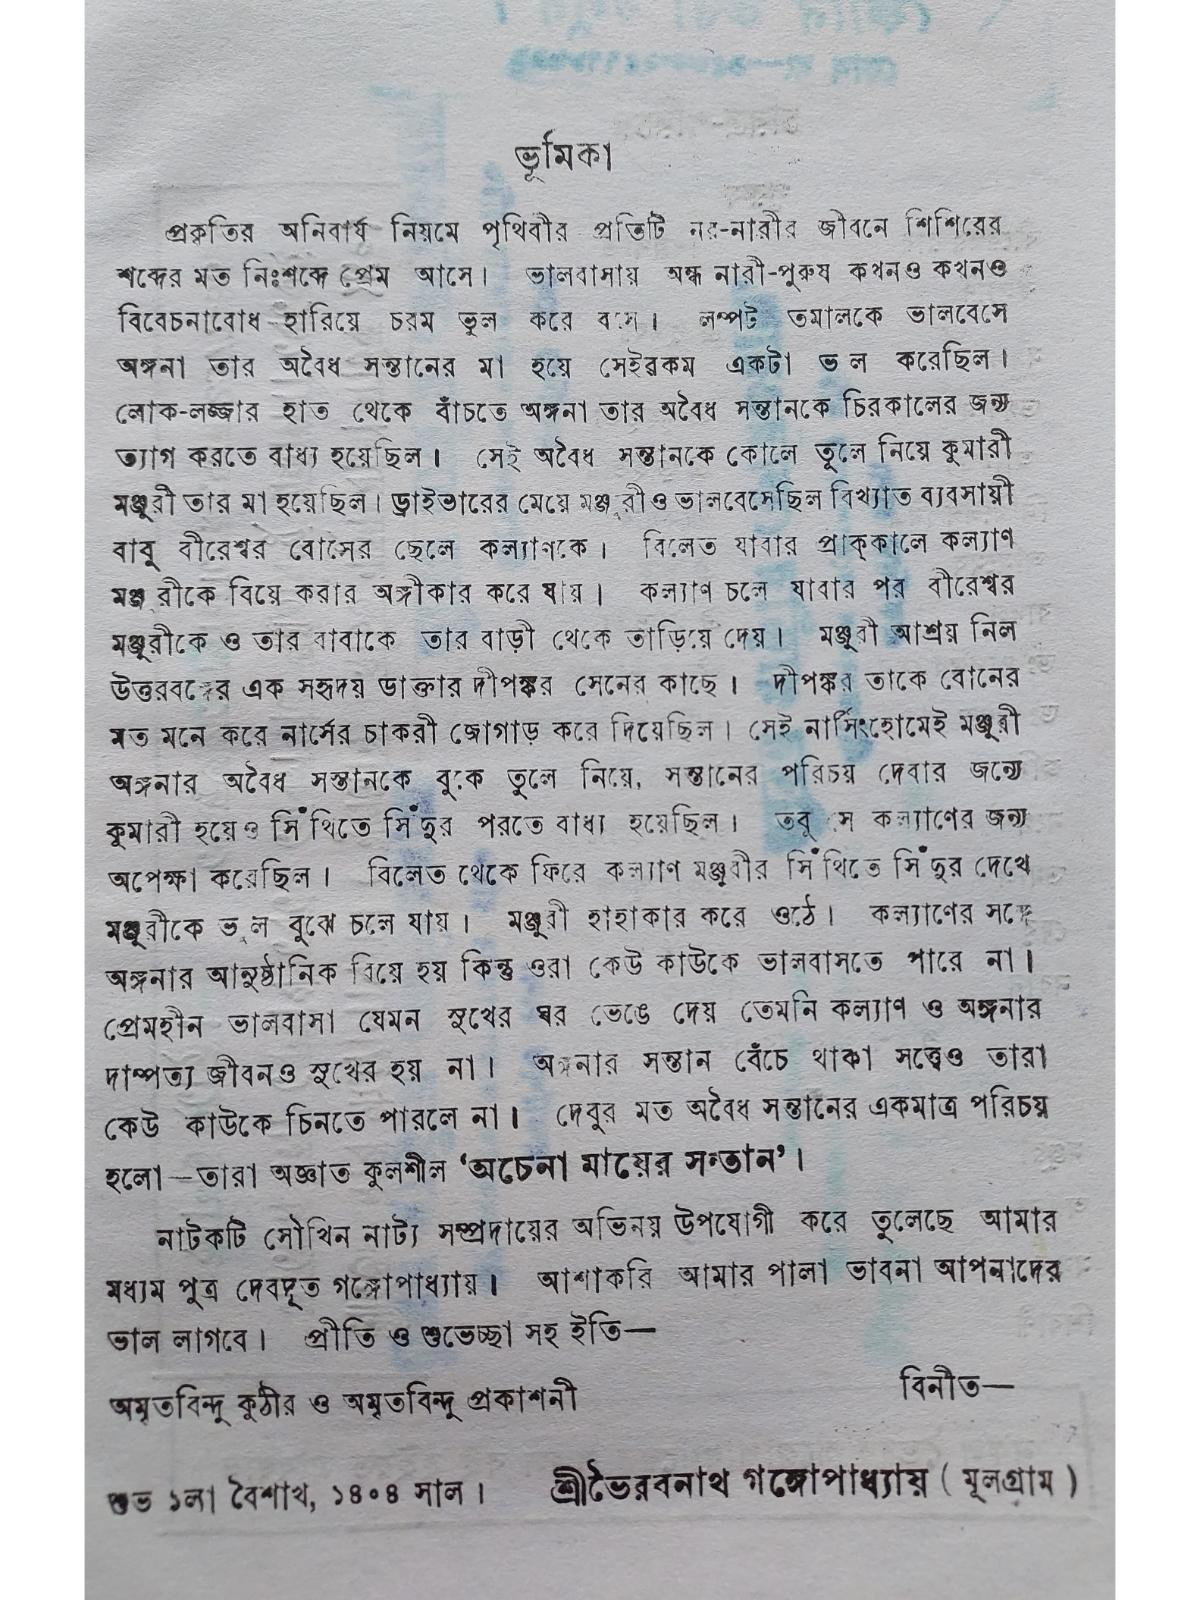 ভূমিকা
প্রকৃতির অনিবার্য নিয়মে পৃথিবীর প্রতিটি নর-নারীর জীবনে শিশিরের
শব্দের মত নিঃশব্দে প্রেম আসে। ভালবাসায় অন্ধ নারী-পুরুষ কখনও কখনও
বিবেচনাবোধ হারিয়ে চরম ভুল করে বসে। লম্পট তমালকে ভালবেসে
অঙ্গনা তার অবৈধ সন্তানের মা হয়ে সেইরকম একটা ভুল করেছিল।
লোক-লজ্জার হাত থেকে বাঁচতে অঙ্গনা তার অবৈধ সন্তানকে চিরকালের জন্য
ত্যাগ করতে বাধ্য হয়েছিল। সেই অবৈধ সন্তানকে কোলে তুলে নিয়ে কুমারী
মঞ্জুরী তার মা হয়েছিল। ড্রাইভারের মেয়ে মঞ্জুরীও ভালবেসেছিল বিখ্যাত ব্যবসায়ী
বাবু বীরেশ্বর বোসের ছেলে কল্যাণকে। বিলেত যাবার প্রাক্‌কালে কল্যাণ
মঞ্জুরীকে বিয়ে করার অঙ্গীকার করে যায়। কল্যাণ চলে যাবার পর বীরেশ্বর
মঞ্জুরীকে ও তার বাবাকে তার বাড়ী থেকে তাড়িয়ে দেয়। মঞ্জুরী আশ্রয় নিল
উত্তরবঙ্গের এক সহৃদয় ডাক্তার দীপঙ্কর সেনের কাছে। দীপঙ্কর তাকে বোনের
মত মনে করে নার্সের চাকরী জোগাড় করে দিয়েছিল। সেই নার্সিংহোমেই মঞ্জুরী
অঙ্গনার অবৈধ সন্তানকে বুকে তুলে নিয়ে, সন্তানের পরিচয় দেবার জন্যে
কুমারী হয়েও সিঁথিতে সিঁদুর পরতে বাধ্য হয়েছিল। তবু সে কল্যাণের জন্য
অপেক্ষা করেছিল। বিলেত থেকে ফিরে কল্যাণ মঞ্জুরীর সিঁথিতে সিঁদুর দেখে
মঞ্জুরীকে ভুল বুঝে চলে যায়। মঞ্জুরী হাহাকার করে ওঠে। কল্যাণের সঙ্গে
অঙ্গনার আনুষ্ঠানিক বিয়ে হয় কিন্তু ওরা কেউ কাউকে ভালবাসতে পারে না।
প্রেমহীন ভালবাসা যেমন সুখের ঘর ভেঙে দেয় তেমনি কল্যাণ ও অঙ্গনার
দাম্পত্য জীবনও সুখের হয় না। অঙ্গনার সন্তান বেঁচে থাকা সত্ত্বেও তারা
কেউ কাউকে চিনতে পারলে না। দেবুর মত অবৈধ সন্তানের একমাত্র পরিচয়
হলো—তারা অজ্ঞাত কুলশীল ‘অচেনা মায়ের সন্তান’।
নাটকটি সৌখিন নাট্য সম্প্রদায়ের অভিনয় উপযোগী করে তুলেছে আমার
মধ্যম পুত্র দেবদূত গঙ্গোপাধ্যায়। আশাকরি আমার পালা ভাবনা আপনাদের
ভাল লাগবে। প্রীতি ও শুভেচ্ছা সহ ইতি—
বিনীত—
অমৃতবিন্দু কুঠীর ও অমৃতবিন্দু প্রকাশনী
শুভ ১লা বৈশাখ, ১৪০৪ সাল। শ্রীভৈরবনাথ গঙ্গোপাধ্যায় ( মূলগ্রাম )